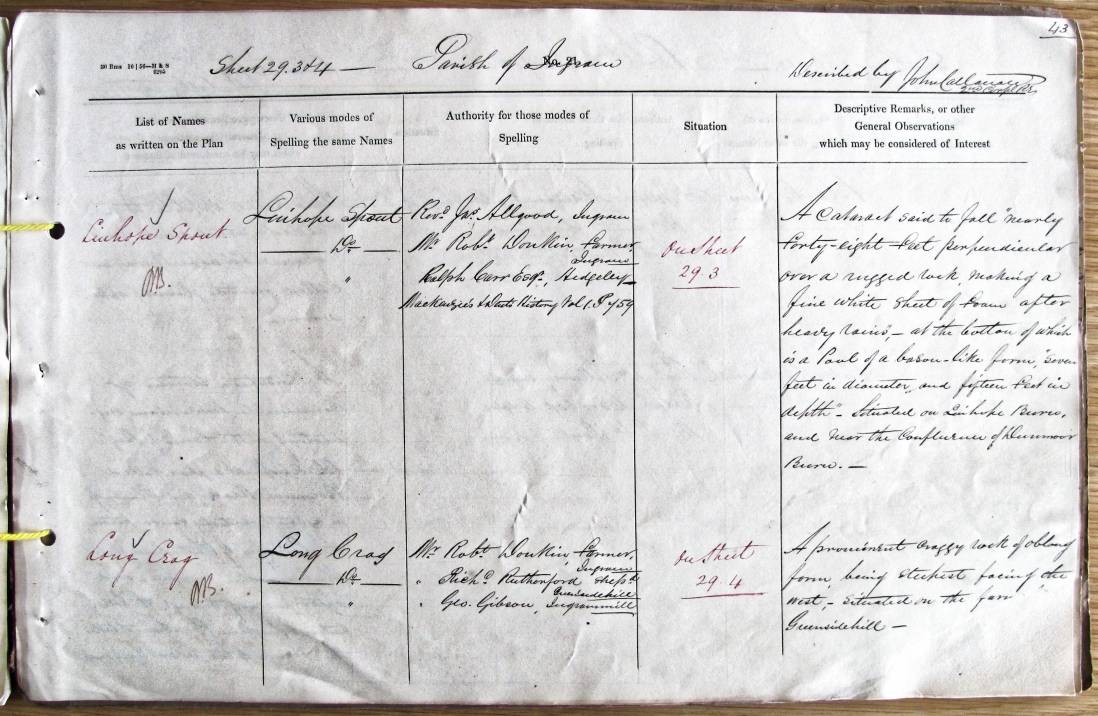 43
Sheet 29.3&4 — Parish of Ingram
Described by John Callanan
2nd Corpl RE
List of Names
as written on the Plan
Various modes of
Spelling the same Names
Authority for those modes of
Spelling
Situation
Descriptive Remarks, or other
General Observations
which may be considered of Interest
Linhope Spout
Linhope Spout
Do
"
Revd. Jas. Allgood, Ingram
Mr. Robt. Donkin Farmer
Ingram
Ralph Carr Esqr., Hedgeley
Mackenzie's History Vol 1. P 459
On Sheet
29.3
A cataract said to fall "nearly
forty-eight feet perpendicular
over a rugged rock, making a
fine white sheet of foam after
heavy rains", — at the bottom of which
is a Pool of a bason-like form, "seven
feet in diameter, and fifteen feet in
depth" — Situated on Linhope Burn,
and near the Confluence of Dunmoor
Burn. —
Long Crag
Long Crag
Do
"
Mr. Robt. Donkin, Farmer,
Ingram
" Richd. Rutherford Shepd.
Greensidehill
" Geo. Gibson, Ingrammill
On Sheet
29.4
A prominent craggy rock of oblong
form, being steepest facing the
west, — situated on the farm
Greensidehill —